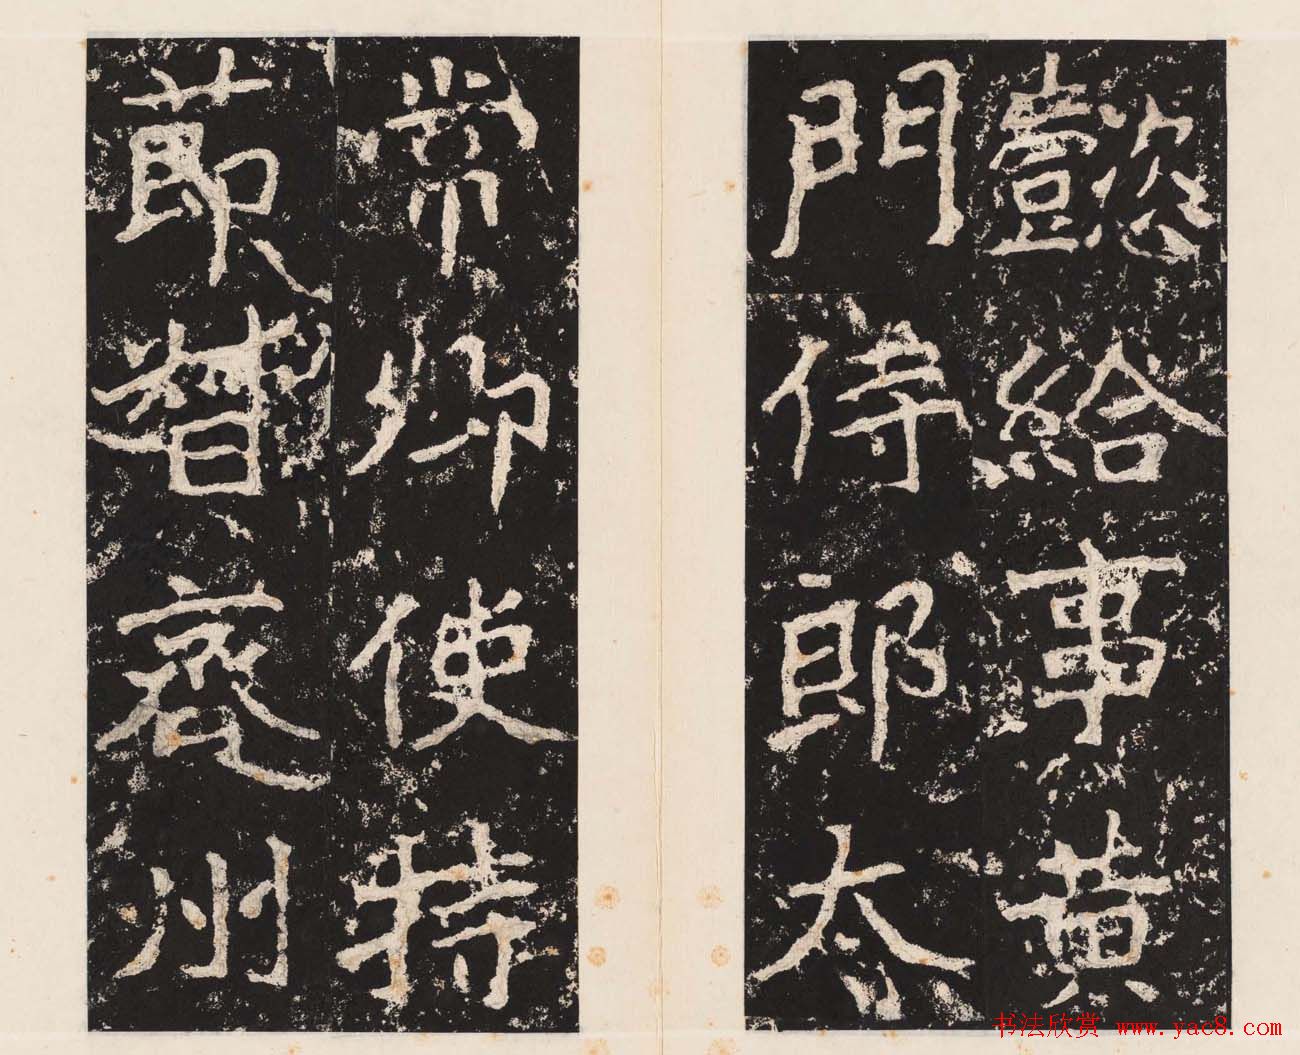 懿給事黃
門侍郎太
常卿使持
莭督齊州
书法欣赏 www.yac8.com